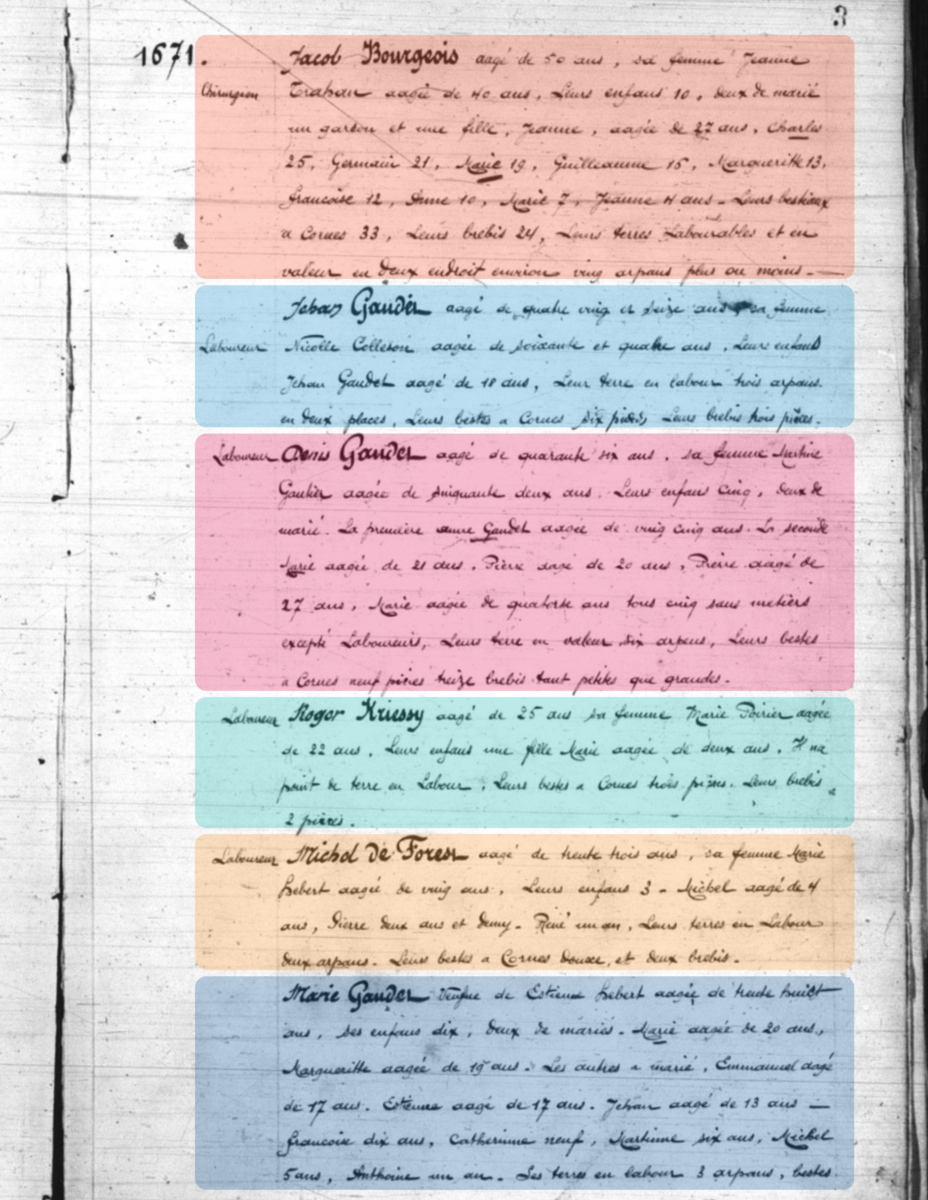 3
1671. Jacob Bourgeois aagé de 50 ans, sa femme Jeanne
Chirurgien Trahan aagée de 40 ans, Leurs enfans 10, deux de marié
un garson et une fille, Jeanne, aagée de 27 ans, Charles
25, Germain 21, Marie 19, Guilleaume 15, Margueritte 13,
francoise 12, Anne 10, Marie 7, Jeanne 4 ans - Leurs bestiaux
a Cornes 33, Leurs brebis 24, Leurs terres Labourables et en
valeur en deux endroit environ ving arpans plus ou moins. —
Jehan Gaudet aagé de quatre ving et seize ans sa femme
Laboureur Nicolle Colleson aagée de soixante et quatre ans, Leurs enfans
Jehan Gaudet aagé de 18 ans, Leur terre en labour trois arpans.
en deux places, Leurs bestes a Cornes six pièces Leurs brebis trois pièces.
Laboureur Denis Gaudet aagé de quarante six ans. sa femme Martine
Gautier aagée de sinquante deux ans. Leurs enfans Cinq, deux de
marié. La première anne Gaudet aagée de ving cinq ans. La seconde
Marie aagée de 21 ans. Pière aagé de 20 ans, Pierre aagé de
27 ans, Marie aagée de quatorse ans tous cinq sans metiers
excepté Laboureurs, Leurs terre en valeur six arpens, Leurs bestes
a Cornes neuf pièces treize brebis tant petites que grandes.
Laboureur Roger Kriessy aagé de 25 ans sa femme Marie Poirier aagée
de 22 ans. Leurs enfans une fille Marie aagée de deux ans. Il na
point de terre en Labour, Leurs bestes a Cornes trois pièces. Leurs brebis
2 pièces.
Laboureur Michel de Forest aagé de trente trois ans, sa femme Marie
hebert aagée de ving ans, Leurs enfans 3 - Michel aagé de 4
ans, Pierre deux ans et demy - René un an, Leurs terres en Labour
deux arpans. Leurs bestes a Cornes Douze, et deux brebis.
Marie Gaudet Veufve de Estienne hebert aagée de trente huict
ans, ses enfans dix, deux de mariés. Marie aagée de 20 ans,
Margueritte aagée de 19 ans. Les autres a marié, Emmanuel aagé
de 17 ans. Estienne aagé de 17 ans. Jehan aagé de 13 ans —
francoise dix ans, Catherinne neuf, Martinne six ans, Michel
5 ans, Anthoine un an. Les terres en labour 3 arpans, bestes